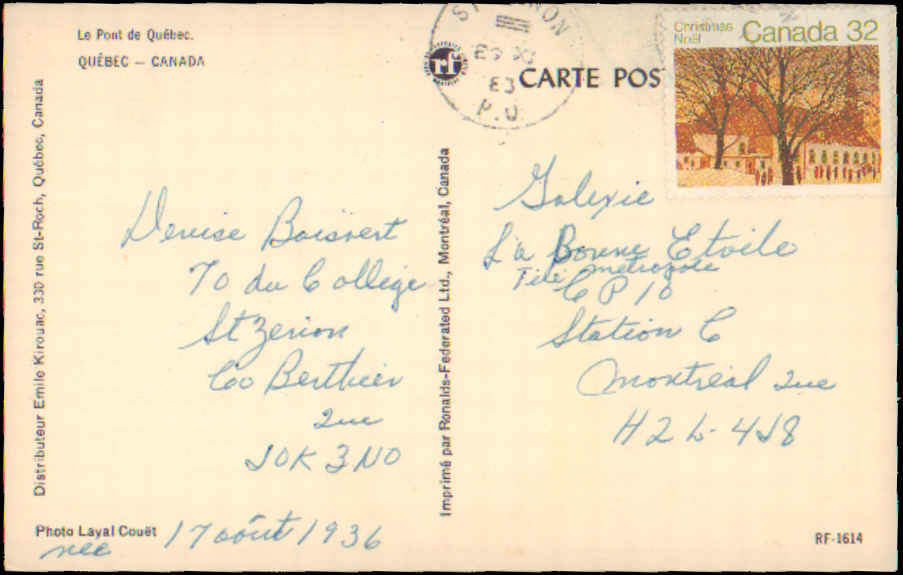 Le Pont de Québec.
QUÉBEC — CANADA
rf
CARTE POS
83
P.Q
Christmas
Noël
Canada 32
Distributeur Emile Kirouac, 330 rue St-Roch, Québec, Canada
Imprimé par Ronalds-Federated Ltd., Montréal, Canada
Denise Boisvert
70 du Collège
St Zénon
Co Berthier
Que
J0K 3N0
Galexie
La Bonne Etoile
Télé métropole
CP 10
Station C
Montréal Que
H2L-4J8
Photo Layal Couët
née 17 août 1936
RF-1614